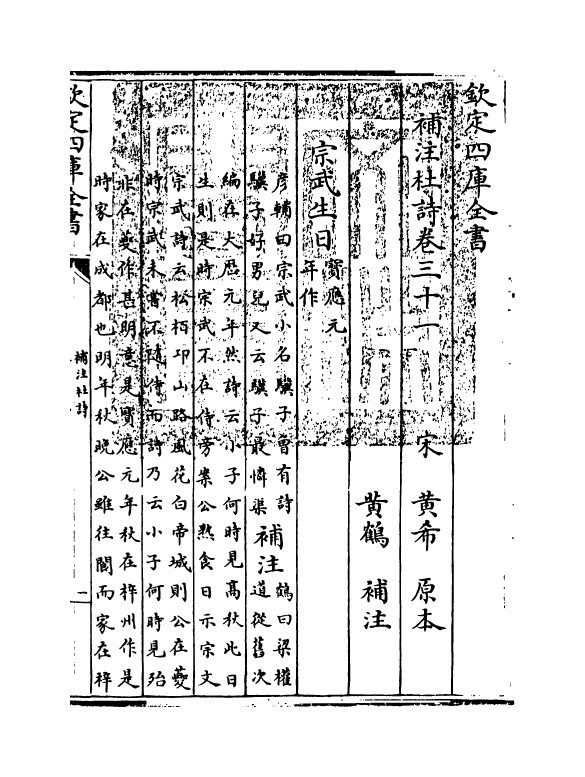 欽定四庫全書
補注杜詩卷三十一 宋 黃希 原本
黃鶴 補注
宗武生日 寶應元
年作
彦輔曰宗武小名驥子曾有詩
驥子好男兒又云驥子最憐渠
補注 鶴曰梁權
道從舊次
編在大厯元年然詩云小子何時見髙秋此日
生則是時宗武不在侍旁案公熟食日示宗文
宗武詩云松栢邙山路風花白帝城則公在夔
時宗武未嘗不隨侍而詩乃云小子何時見殆
非在夔作甚明意是寶應元年秋在梓州作是
時家在成都也明年秋晚公雖往閬而家在梓
欽定四庫全書
補注杜詩
一